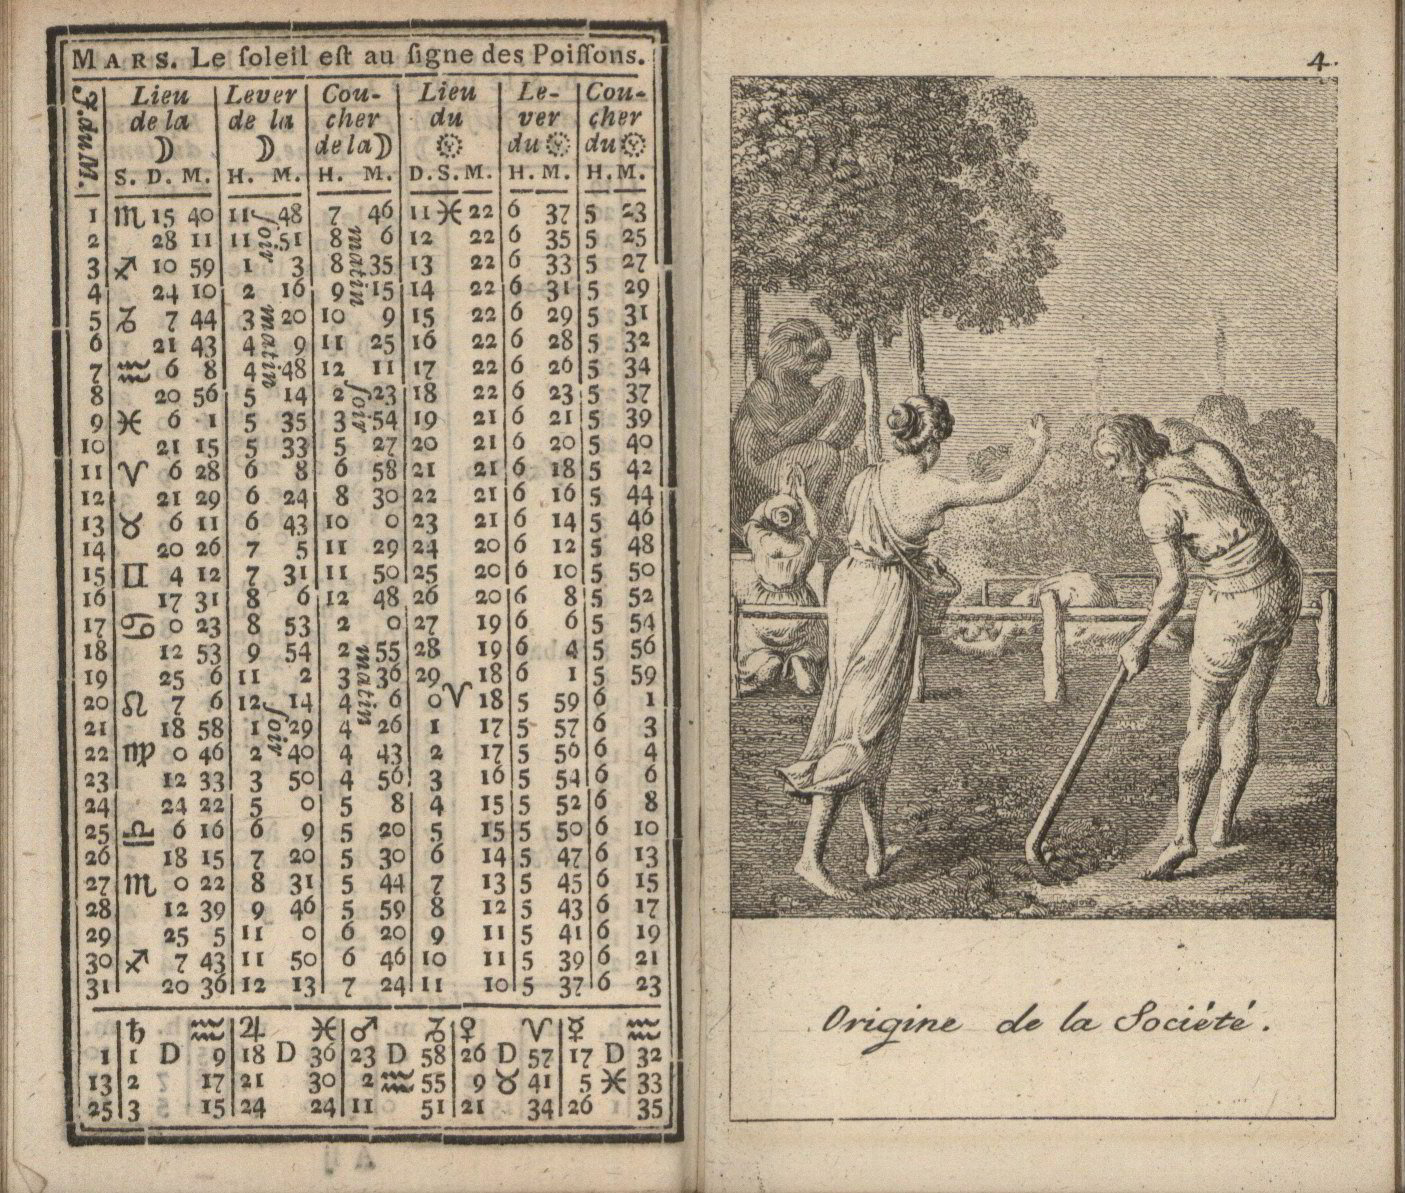 MARS. Le ſoleil eſt au ſigne des Poiſſons.
J. du M. | Lieu de la ☽ | Lever de la ☽ | Coucher de la ☽ | Lieu du ☉ | Lever du ☉ | Coucher du ☉
S. D. M. | H. M. | H. M. | D. S. M. | H. M. | H. M.
1 | ♏ 15 40 | 11 ſoir 48 | 7 matin 46 | 11 ♓ 22 | 6 37 | 5 23
2 | 28 11 | 11 51 | 8 6 | 12 22 | 6 35 | 5 25
3 | ♐ 10 59 | 1 matin 3 | 8 35 | 13 22 | 6 33 | 5 27
4 | 24 10 | 2 16 | 9 15 | 14 22 | 6 31 | 5 29
5 | ♑ 7 44 | 3 20 | 10 9 | 15 22 | 6 29 | 5 31
6 | 21 43 | 4 9 | 11 25 | 16 22 | 6 28 | 5 32
7 | ♒ 6 8 | 4 48 | 12 ſoir 11 | 17 22 | 6 26 | 5 34
8 | 20 56 | 5 14 | 2 23 | 18 22 | 6 23 | 5 37
9 | ♓ 6 1 | 5 35 | 3 54 | 19 21 | 6 21 | 5 39
10 | 21 15 | 5 33 | 5 27 | 20 21 | 6 20 | 5 40
11 | ♈ 6 28 | 6 8 | 6 58 | 21 21 | 6 18 | 5 42
12 | 21 29 | 6 24 | 8 30 | 22 21 | 6 16 | 5 44
13 | ♉ 6 11 | 6 43 | 10 0 | 23 21 | 6 14 | 5 46
14 | 20 26 | 7 5 | 11 29 | 24 20 | 6 12 | 5 48
15 | ♊ 4 12 | 7 31 | 11 50 | 25 20 | 6 10 | 5 50
16 | 17 31 | 8 6 | 12 48 | 26 20 | 6 8 | 5 52
17 | ♋ 0 23 | 8 53 | 2 matin 0 | 27 19 | 6 6 | 5 54
18 | 12 53 | 9 54 | 2 55 | 28 19 | 6 4 | 5 56
19 | 25 6 | 11 2 | 3 36 | 29 18 | 6 1 | 5 59
20 | ♌ 7 6 | 12 ſoir 14 | 4 6 | 0 ♈ 18 | 5 59 | 6 1
21 | 18 58 | 1 29 | 4 26 | 1 17 | 5 57 | 6 3
22 | ♍ 0 46 | 2 40 | 4 43 | 2 17 | 5 56 | 6 4
23 | 12 33 | 3 50 | 4 56 | 3 16 | 5 54 | 6 6
24 | 24 22 | 5 0 | 5 8 | 4 15 | 5 52 | 6 8
25 | ♎ 6 16 | 6 9 | 5 20 | 5 15 | 5 50 | 6 10
26 | 18 15 | 7 20 | 5 30 | 6 14 | 5 47 | 6 13
27 | ♏ 0 22 | 8 31 | 5 44 | 7 13 | 5 45 | 6 15
28 | 12 39 | 9 46 | 5 59 | 8 12 | 5 43 | 6 17
29 | 25 5 | 11 0 | 6 20 | 9 11 | 5 41 | 6 19
30 | ♐ 7 43 | 11 50 | 6 46 | 10 11 | 5 39 | 6 21
31 | 20 36 | 12 13 | 7 24 | 11 10 | 5 37 | 6 23
♄ ♒ | ♃ ♓ | ♂ ♑ | ♀ ♈ | ☿ ♒
1 | 1 D 9 | 18 D 36 | 23 D 58 | 26 D 57 | 17 D 32
13 | 2 17 | 21 30 | 2 ♒ 55 | 9 ♉ 41 | 5 ♓ 33
25 | 3 15 | 24 24 | 11 51 | 21 34 | 26 35
4.
Origine de la Société.